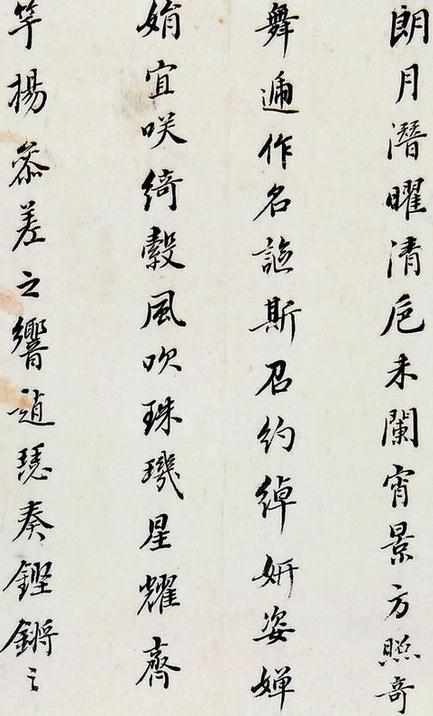 朗月潛曜清卮未闌宵景方照奇
舞遞作名謳斯召約綽妍姿嬋
娟宜咲綺縠風吹珠璣星耀齊
竽揚叅差之響趙瑟奏鏗鏘之